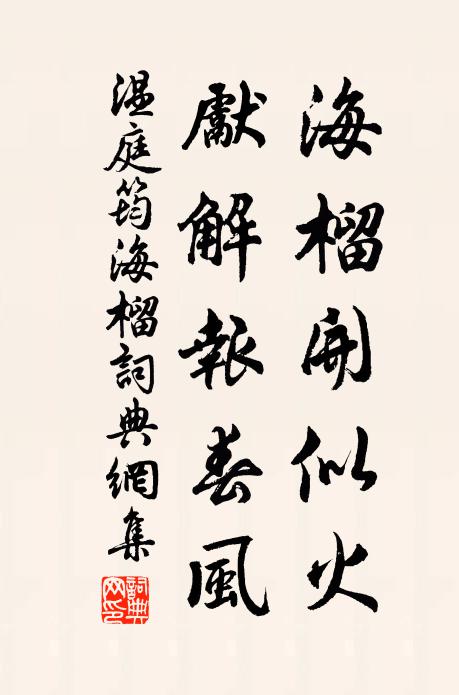 海榴開似火
獻解報春風
温庭筠海榴詞典網集
詞典网印